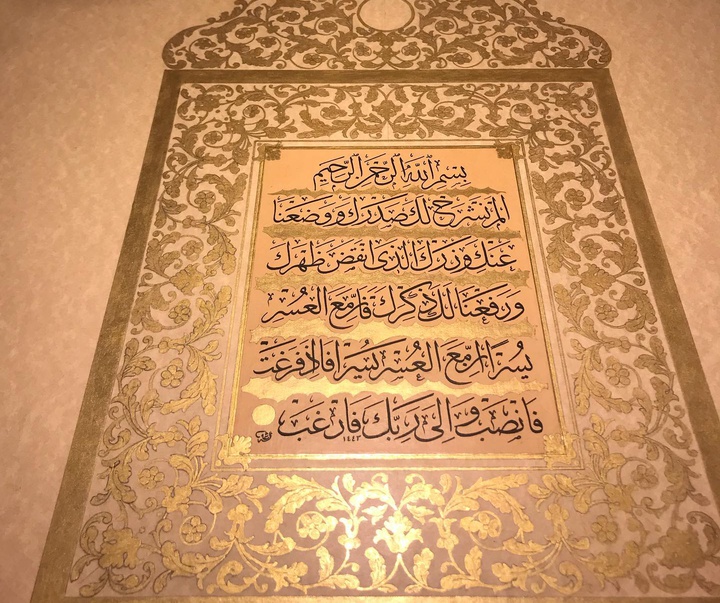 بِسْمِ اللّٰهِ الرَّحْمٰنِ الرَّحِيمِ
اَلَمْ نَشْرَحْ لَكَ صَدْرَكَ وَوَضَعْنَا
عَنْكَ وِزْرَكَ الَّذِى اَنْقَضَ ظَهْرَكَ
وَرَفَعْنَا لَكَ ذِكْرَكَ فَاِنَّ مَعَ الْعُسْرِ
يُسْرًا اِنَّ مَعَ الْعُسْرِ يُسْرًا فَاِذَا فَرَغْتَ
فَانْصَبْ وَاِلٰى رَبِّكَ فَارْغَبْ
١٤٤٣